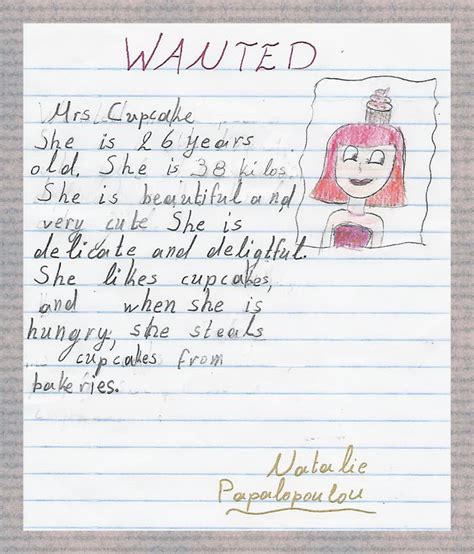 WANTED
Mrs Cupcake
She is 26 years
old. She is 38 kilos.
She is beautiful and
very cute She is
delicate and deligtful.
She likes cupcakes,
and when she is
hungry, she steals
cupcakes from
bakeries.
Natalie
Papalopoulou